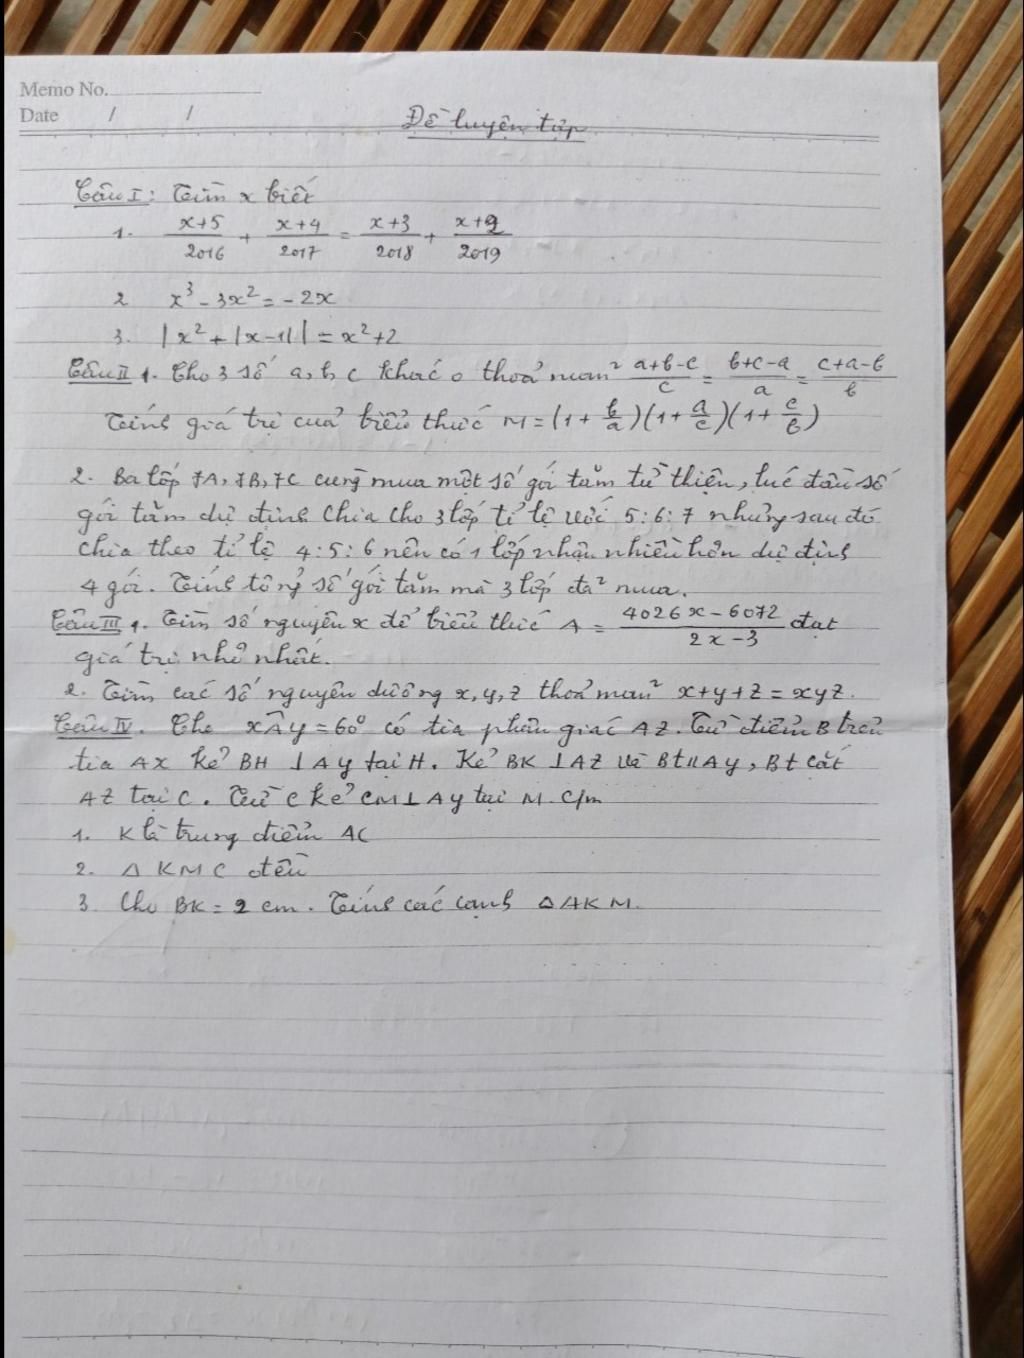 Memo No.
Date / /
Đề luyện tập
Câu I: Tìm x biết
1. \frac{x+5}{2016} + \frac{x+4}{2017} = \frac{x+3}{2018} + \frac{x+2}{2019}
2. x³ - 3x² = - 2x
3. | x² + |x-1| | = x² + 2
Câu II 1. Cho 3 số a, b, c khác 0 thoả mãn \frac{a+b-c}{c} = \frac{b+c-a}{a} = \frac{c+a-b}{b}
Tính giá trị của biểu thức M = (1 + \frac{b}{a})(1 + \frac{a}{c})(1 + \frac{c}{b})
2. Ba lớp 7A, 7B, 7C cùng mua một số gói tăm từ thiện, lúc đầu số
gói tăm dự định chia cho 3 lớp tỉ lệ với 5:6:7 nhưng sau đó
chia theo tỉ lệ 4:5:6 nên có 1 lớp nhận nhiều hơn dự định
4 gói. Tính tổng số gói tăm mà 3 lớp đã mua.
Câu III 1. Tìm số nguyên x để biểu thức A = \frac{4026x - 6072}{2x - 3} đạt
giá trị nhỏ nhất.
2. Tìm các số nguyên dương x, y, z thoả mãn x+y+z = xyz.
Câu IV. Cho xÂy = 60⁰ có tia phân giác AZ. Từ điểm B trên
tia AX kẻ BH ⊥ Ay tại H. Kẻ BK ⊥ AZ và Bt // Ay, Bt cắt
AZ tại C. Từ C kẻ CM ⊥ Ay tại M. C/m
1. K là trung điểm AC
2. Δ KMC đều
3. Cho BK = 2 cm. Tính các cạnh Δ AKM.